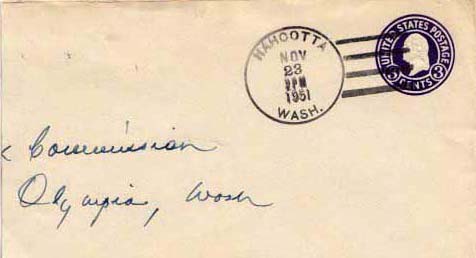 NAHCOTTA
NOV
23
PM
1951
WASH.
UNITED STATES POSTAGE
3 CENTS 3
Commission
Olympia, Wash